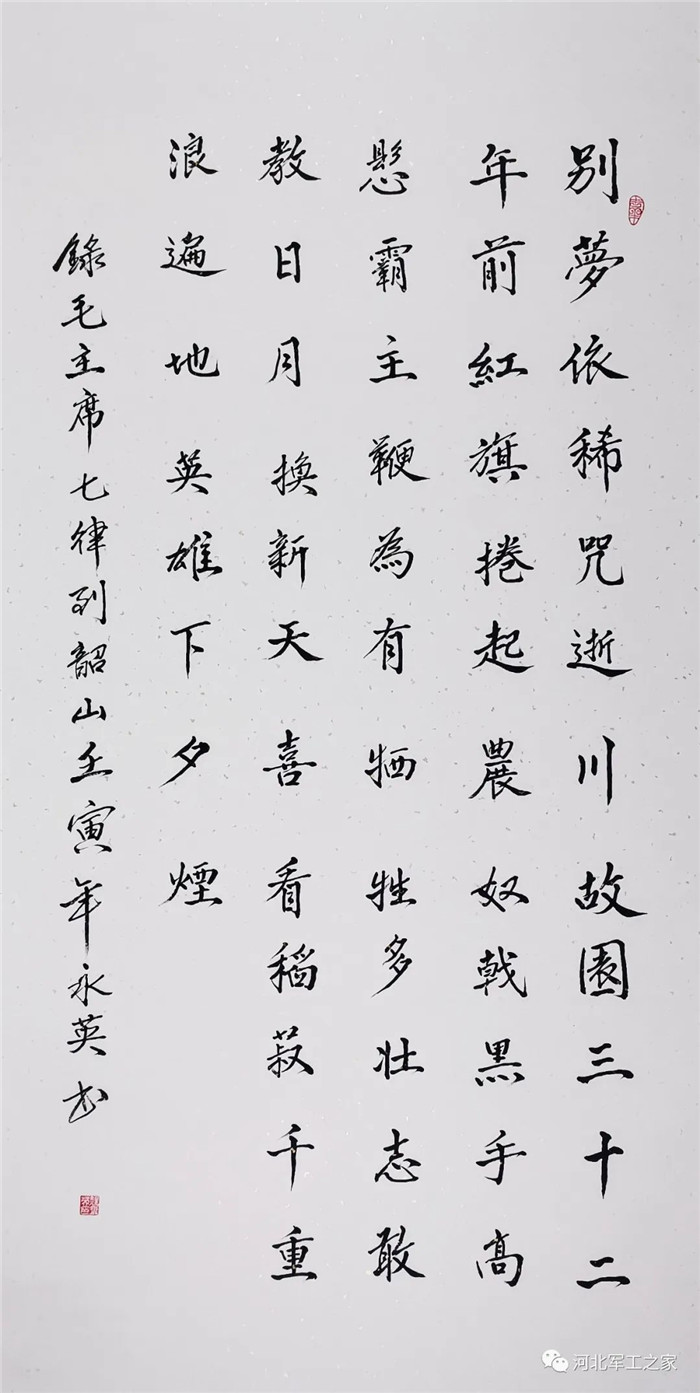 别夢依稀咒逝川故園三十二
年前紅旗捲起農奴戟黑手高
懸霸主鞭為有牺牲多壮志敢
教日月換新天喜看稻菽千重
浪遍地英雄下夕煙
錄毛主席七律到韶山壬寅年永英书
河北军工之家